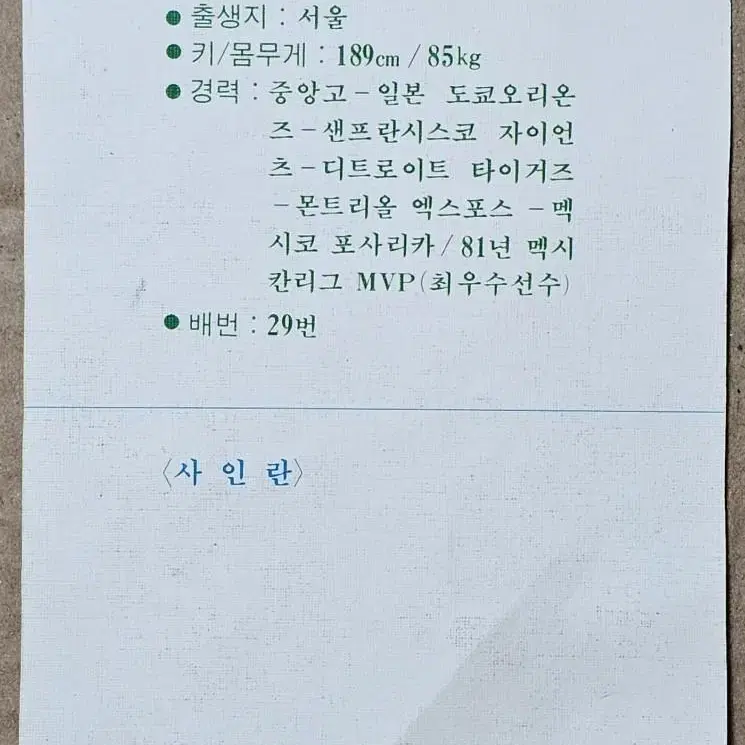 ● 출생지 : 서울
● 키/몸무게 : 189cm / 85kg
● 경력 : 중앙고-일본 도쿄오리온
즈-샌프란시스코 자이언
츠-디트로이트 타이거즈
-몬트리올 엑스포스 -멕
시코 포사리카/81년 멕시
칸리그 MVP(최우수선수)
● 배번 : 29번
〈사 인 란〉